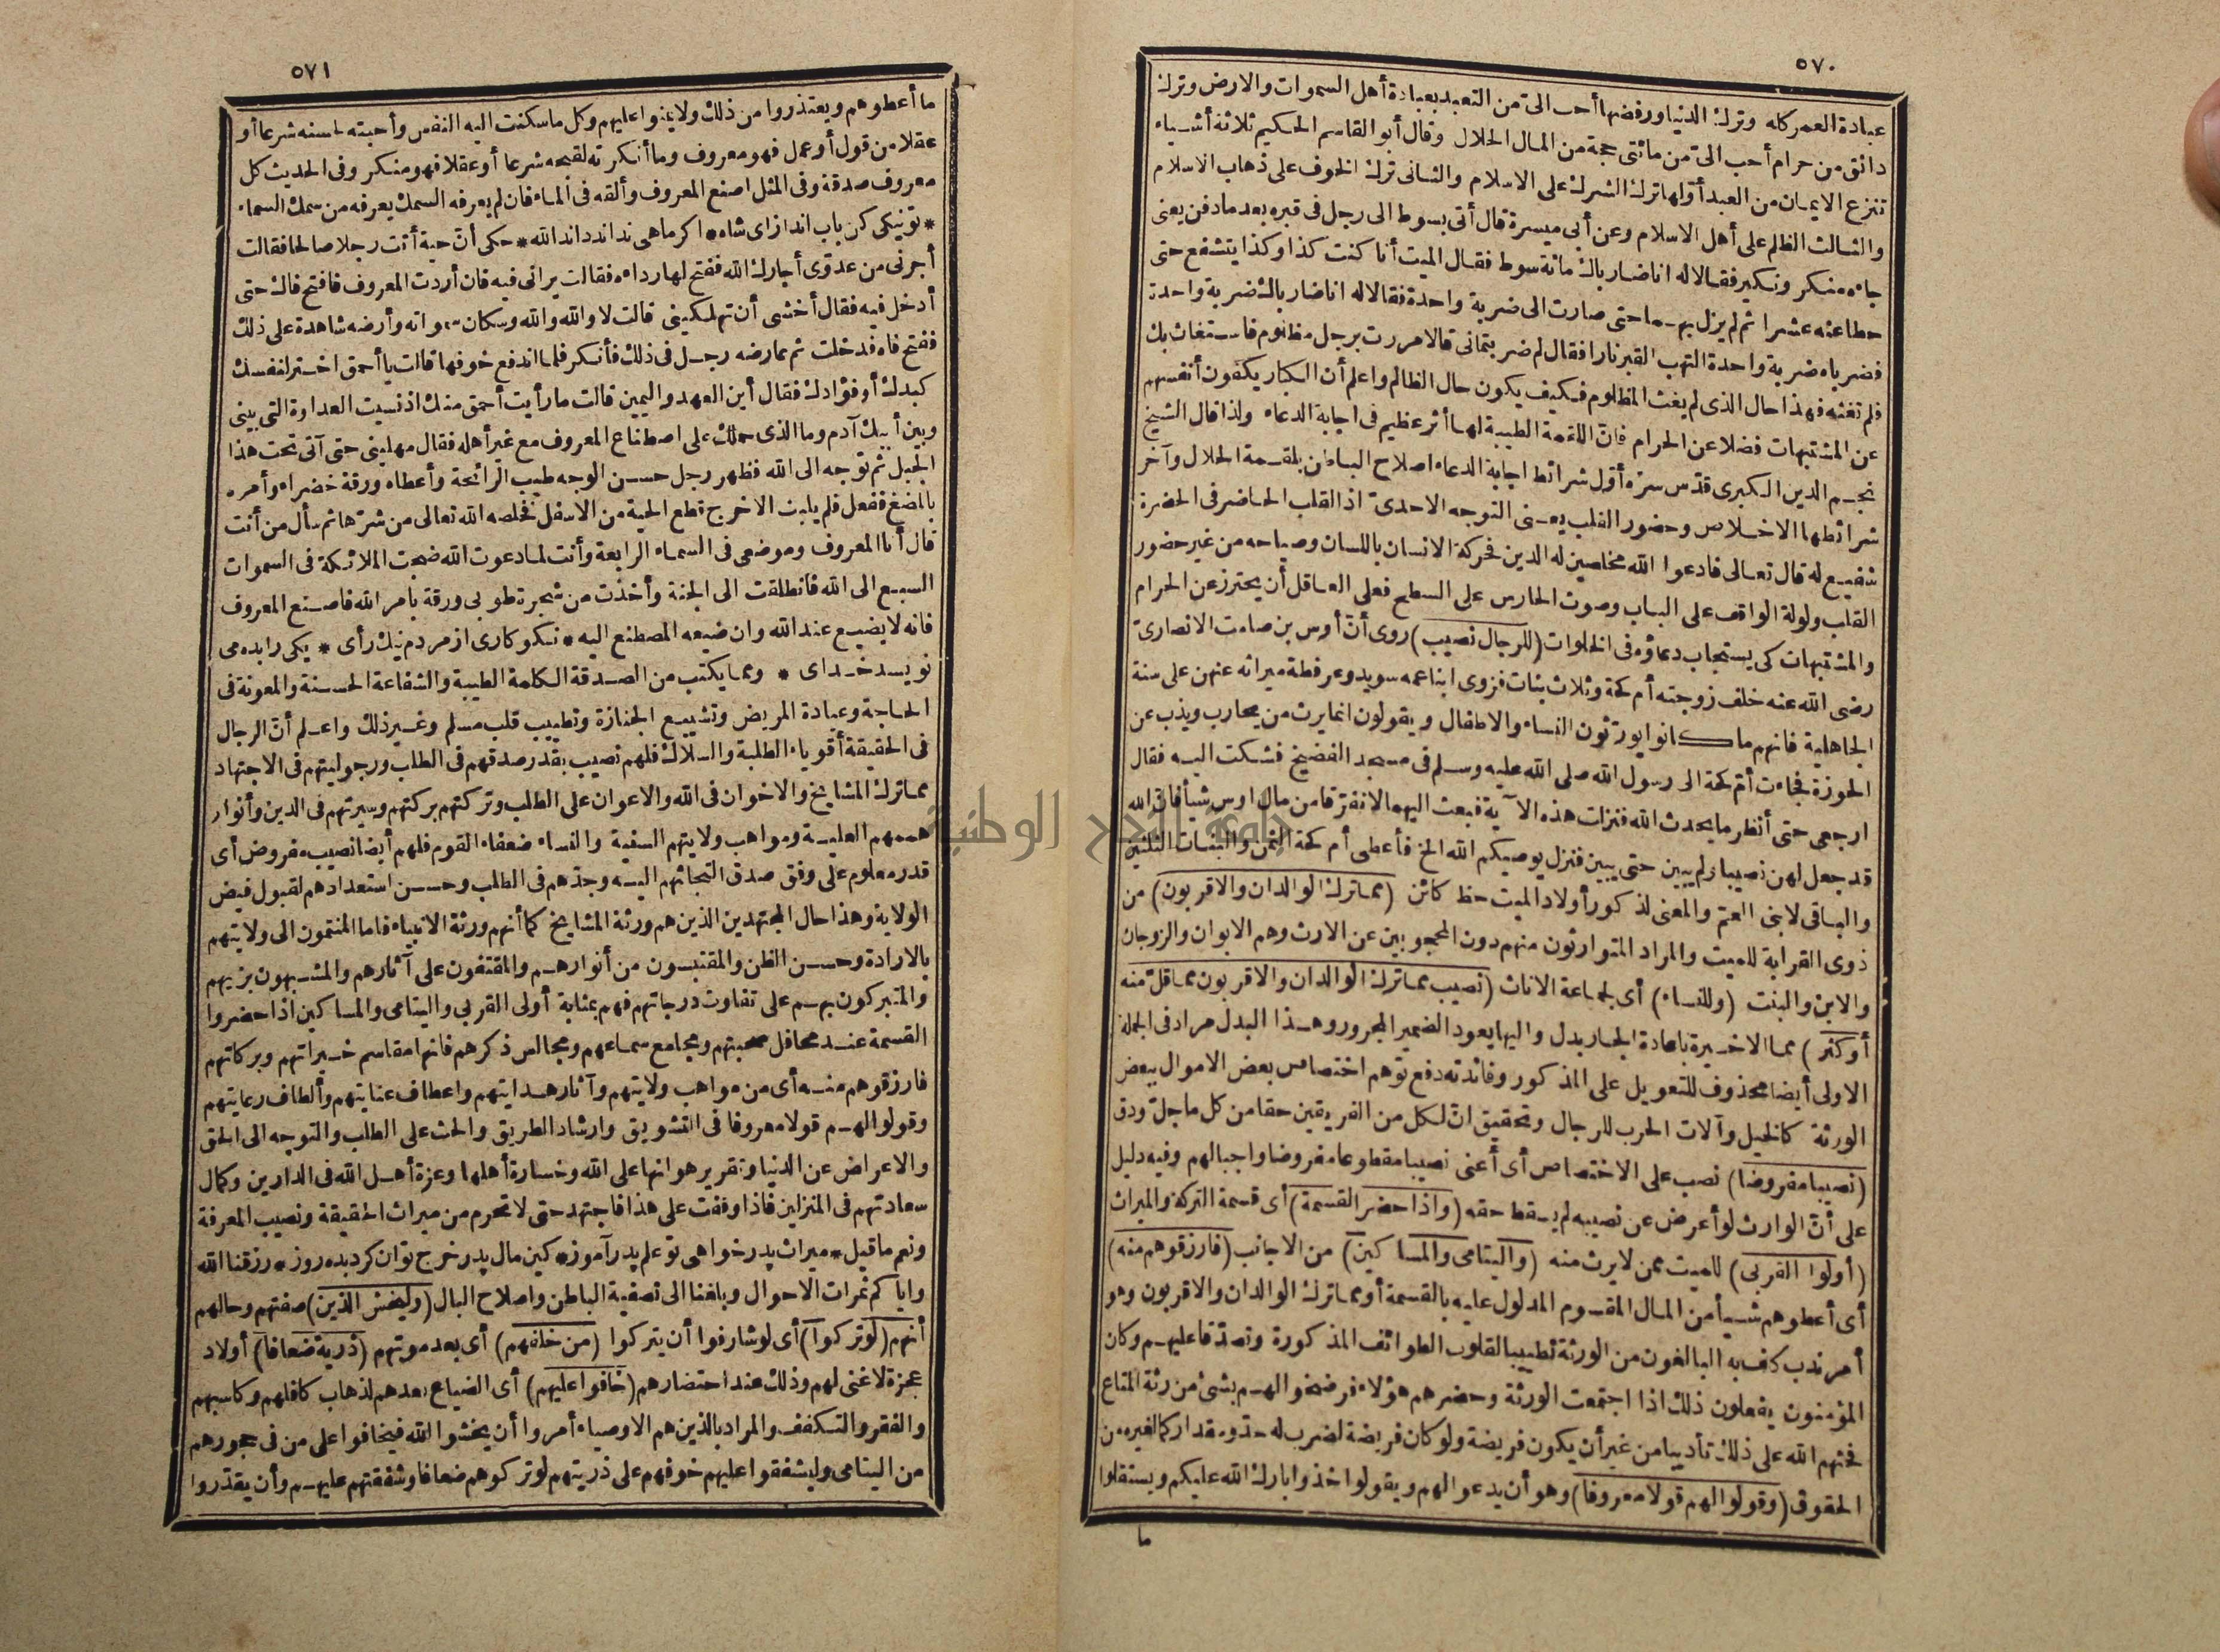 ٥٧٠
عبادة العمر كله وترك الدنيا ورفضها أحب الىّ من التعبد بعبادة أهل السموات والارض وترك
دانق من حرام أحب الىّ من مائتى حجة من المال الحلال وقال أبو القاسم الحكيم ثلاثة أشياء
تنزع الايمان من العبد أوّلها ترك الشرك على الاسلام والثانى ترك الخوف على ذهاب الاسلام
والثالث الظلم على أهل الاسلام وعن أبى ميسرة قال أتى بسوط الى رجل فى قبره بعد ما دفن يعنى
جاءه منكر ونكير فقالا له انا ضاربالك مائة سوط فقال الميت أنا كنت كذا وكذا يتشفع حتى
حطا عنه عشرا ثم لم يزل بهما حتى صارت الى ضربة واحدة فقالا له انا ضاربالك ضربة واحدة
فضرباه ضربة واحدة التهب القبر نارا فقال لم ضربتمانى قالا مررت برجل مظلوم فاستغاث بك
فلم تغثه فهذا حال الذى لم يغث المظلوم فكيف يكون حال الظالم واعلم أن الكبار يكفون أنفسهم
عن المشتبهات فضلا عن الحرام فانّ اللقمة الطيبة لها أثر عظيم فى اجابة الدعاء ولذا قال الشيخ
نجم الدين الكبرى قدّس سرّه أوّل شرائط اجابة الدعاء اصلاح الباطن بلقمة الحلال وآخر
شرائطها الاخلاص وحضور القلب يعنى التوجه الاحدىّ اذ القلب الحاضر فى الحضرة
شفيع له قال تعالى فادعوا الله مخلصين له الدين فحركة الانسان باللسان وصياحه من غير حضور
القلب ولولة الواقف على الباب وصوت الحارس على السطح فعلى العاقل أن يحترز عن الحرام
والمشتبهات كى يستجاب دعاؤه فى الخلوات (للرجال نصيب) روى أنّ أوس بن صامت الانصارىّ
رضى الله عنه خلف زوجته أم كحة وثلاث بنات فزوى ابنا عمه سويد وعرفطة ميراثه عنهن على سنة
الجاهلية فانهم ما كانوا يورثون النساء والاطفال ويقولون انما يرث من يحارب ويذب عن
الحوزة فجاءت أمّ كحة الى رسول الله صلى الله عليه وسلم فى مسجد الفضيخ فشكت اليه فقال
ارجعى حتى أنظر ما يحدث الله فنزلت هذه الآية فبعث اليهما لا تفرّقا من مال اوس شيأ فانّ الله
قد جعل لهن نصيبا ولم يبين حتى يبين فنزل يوصيكم الله الخ فأعطى أم كحة الثمن والبنات الثلثين
والباقى لابنى العمّ والمعنى لذكور أولاد الميت حظ كائن (مما ترك الوالدان والاقربون) من
ذوى القرابة للميت والمراد المتوارثون منهم دون المحجوبين عن الارث وهم الابوان والزوجان
والابن والبنت (وللنساء) أى لجماعة الاناث (نصيب مما ترك الوالدان والاقربون مما قلّ منه
أو كثر) مما الاخيرة باعادة الجار بدل واليها يعود الضمير المجرور وهذا البدل مراد فى الجملة
الاولى أيضا محذوف للتعويل على المذكور وفائدته دفع توهم اختصاص بعض الاموال ببعض
الورثة كالخيل وآلات الحرب للرجال وتحقيق انّ لكل من الفريقين حقا من كل ما جلّ ودق
(نصيبا مفروضا) نصب على الاختصاص أى أعنى نصيبا مقطوعا مفروضا واجبا لهم وفيه دليل
على أنّ الوارث لو أعرض عن نصيبه لم يسقط حقه (واذا حضر القسمة) أى قسمة التركة والميراث
(أولوا القربى) للميت ممن لا يرث منه (واليتامى والمساكين) من الاجانب (فارزقوهم منه)
أى أعطوهم شيأ من المال المقسوم المدلول عليه بالقسمة أو مما ترك الوالدان والاقربون وهو
أمر ندب كلف به البالغون من الورثة تطييبا لقلوب الطوائف المذكورة وتصدّقا عليهم وكان
المؤمنون يفعلون ذلك اذا اجتمعت الورثة وحضرهم هؤلاء فرضخوا لهم بشئ من رثة المتاع
فحثهم الله على ذلك تأديبا من غير أن يكون فريضة ولو كان فريضة لضرب له حدّ ومقدار كما لغيره من
الحقوق (وقولوا لهم قولا معروفا) وهو أن يدعوا لهم ويقولوا خذوا بارك الله عليكم ويستقلوا
ما
٥٧١
ما أعطوهم ويعتذروا من ذلك ولا يمنوا عليهم وكل ما سكنت اليه النفس وأحبته لحسنه شرعا أو
عقلا من قول أو عمل فهو معروف وما أنكرته لقبحه شرعا أو عقلا فهو منكر وفى الحديث كل
معروف صدقة وفى المثل اصنع المعروف وألقه فى الماء فان لم يعرفه السمك يعرفه من سمك السماء
* تو نيكى كن باب انداز اى شاه * اكر ماهى نداند داند الله * حكى أنّ حية أتت رجلا صالحا فقالت
أجرنى من عدوّى أجارك الله ففتح لها رداءه فقالت يرانى فيه فان أردت المعروف فافتح فاك حتى
أدخل فيه فقال أخشى أن تهلكينى قالت لا والله والله وسكان سمواته وأرضه شاهدة على ذلك
ففتح فاه فدخلت ثم عارضه رجل فى ذلك فأنكر فلما اندفع خوفها قالت يا أحمق اختر لنفسك
كبدك أو فؤادك فقال أين العهد واليمين قالت ما رأيت أحمق منك اذ نسيت العداوة التى بينى
وبين أبيك آدم وما الذى حملك على اصطناع المعروف مع غير أهله فقال مهلينى حتى آتى تحت هذا
الجبل ثم توّجه الى الله فظهر رجل حسن الوجه طيب الرائحة وأعطاه ورقة خضراء وأمره
بالمضغ ففعل فلم يلبث الا خرج قطع الحية من الاسفل فخلصه الله تعالى من شرّها ثم سأل من أنت
قال أنا المعروف وموضعى فى السماء الرابعة وأنت لما دعوت الله ضجت الملائكة فى السموات
السبع الى الله فانطلقت الى الجنة وأخذت من شجرة طوبى ورقة بأمر الله فاصنع المعروف
فانه لا يضيع عند الله وان ضيعه المصطنع اليه * نكو كارى از مردم نيك رأى * يكى را بده مى
نويسد خداى * ومما يكتب من الصدقة الكلمة الطيبة والشفاعة الحسنة والمعونة فى
الحاجة وعيادة المريض وتشييع الجنازة وتطييب قلب مسلم وغير ذلك واعلم أنّ الرجال
فى الحقيقة أقوياء الطلبة والسلاك فلهم نصيب بقدر صدقهم فى الطلب ورجوليتهم فى الاجتهاد
مما ترك المشايخ والاخوان فى الله والاعوان على الطلب وتركتهم بركتهم وسيرتهم فى الدين وأنوار
هممهم العلية ومواهب ولايتهم السنية والنساء ضعفاء القوم فلهم أيضا نصيب مفروض أى
قدر معلوم على وفق صدق التجائهم اليه وجدّهم فى الطلب وحسن استعدادهم لقبول فيض
الولاية وهذا حال المجتهدين الذين هم ورثة المشايخ كما أنهم ورثة الانبياء فاما المنتمون الى ولايتهم
بالارادة وحسن الظن والمقتبسون من أنوارهم والمقتفون على آثارهم والمشبهون بزيهم
والمتبركون بهم على تفاوت درجاتهم فهم بمثابة أولى القربى واليتامى والمساكين اذا حضروا
القسمة عند محافل صحبتهم ومجامع سماعهم ومجالس ذكرهم فانها مقاسم خيراتهم وبركاتهم
فارزقوهم منه أى من مواهب ولايتهم وآثار هدايتهم واعطاف عنايتهم وألطاف رعايتهم
وقولوا لهم قولا معروفا فى التشويق وارشاد الطريق والحث على الطلب والتوجه الى الحق
والاعراض عن الدنيا وتقرير هوانها على الله وخسارة أهلها وعزة أهل الله فى الدارين وكمال
سعادتهم فى المنزلين فاذا وقفت على هذا فاجتهد حتى لا تحرم من ميراث الحقيقة ونصيب المعرفة
ونعم ما قيل * ميراث پدر خواهى تو علم پدر آموز * كين مال پدر خرج توان كرد بده روز * رزقنا الله
واياكم ثمرات الاحوال وبلغنا الى تصفية الباطن واصلاح البال (وليخش الذين) صفتهم وحالهم
أنهم (لو تركوا) أى لو شارفوا أن يتركوا (من خلفهم) أى بعد موتهم (ذرية ضعافا) أولاد
عجزة لا غنى لهم وذلك عند احتضارهم (خافوا عليهم) أى الضياع بعدهم لذهاب كافلهم وكاسبهم
والفقر والتكفف والمراد بالذين هم الاوصياء أمروا أن يخشوا الله فيخافوا على من فى حجورهم
من اليتامى وليشفقوا عليهم خوفهم على ذريتهم لو تركوهم ضعافا وشفقتهم عليهم وأن يقدّروا
جامعة النجاح الوطنية